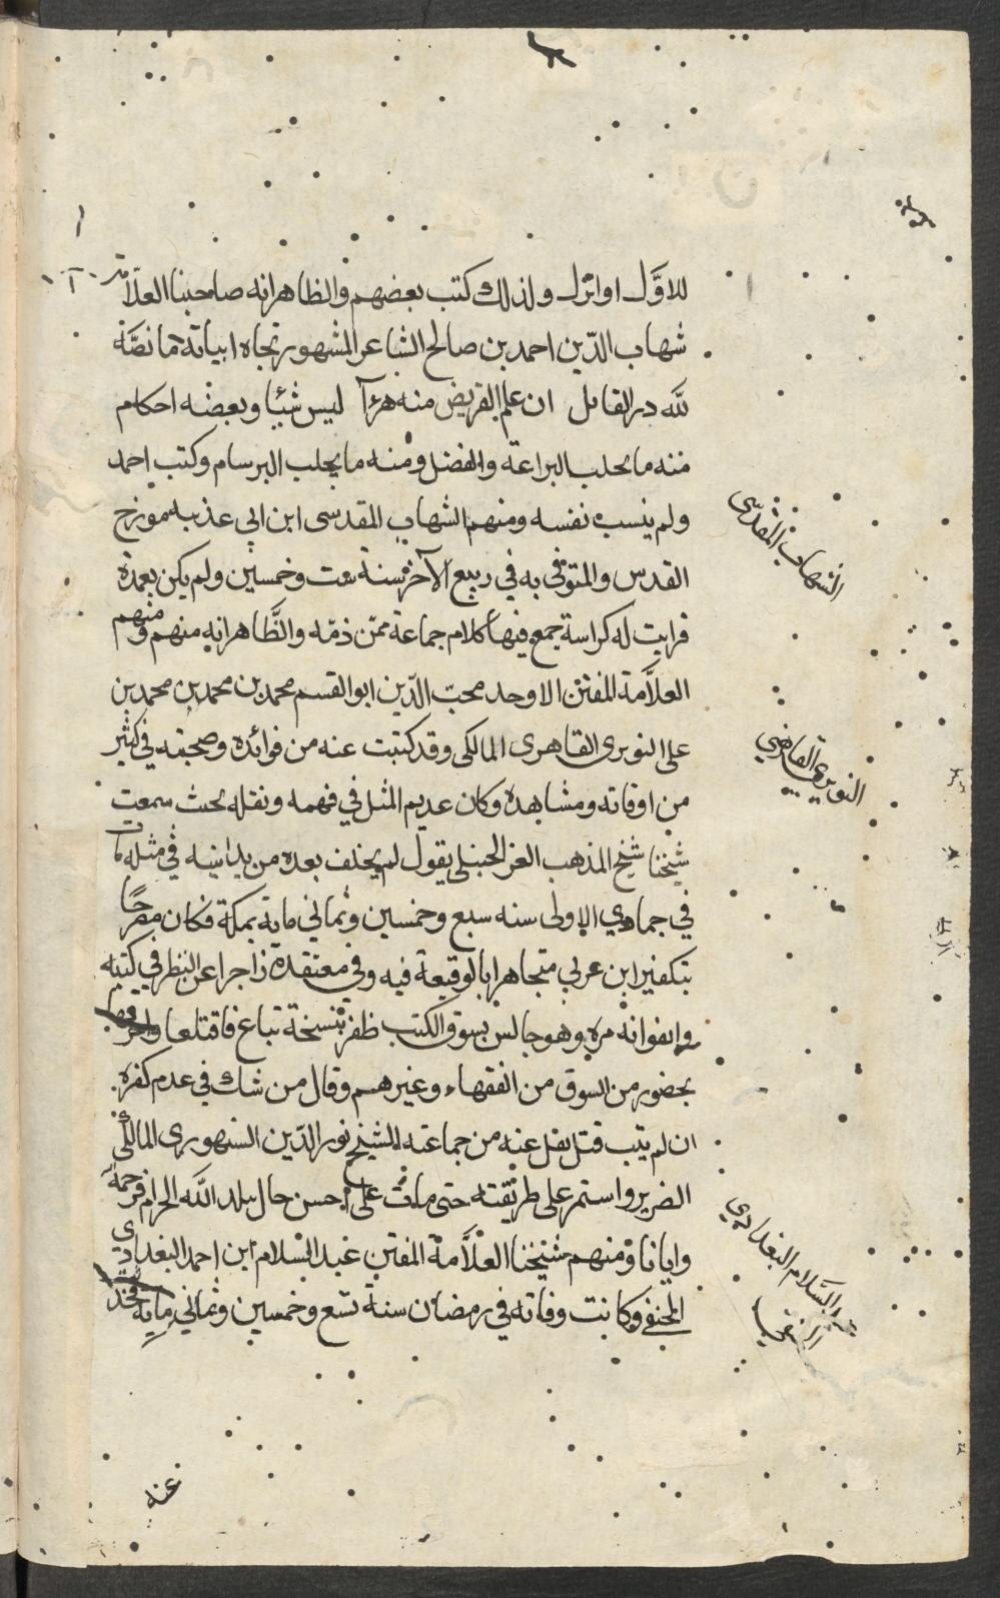 للاوَّل او انزل ولذلك كتب بعضهم والظاهر انه صاحبنا العلّامة
شهاب الدّين احمد بن صالح الشاعر المشهور تجاه ابياته ما نصّه
للّه در القائل ان علم القريض منه هرآ ليس شيًا وبعضه احكام
منه ما يجلب البراعة والفضل ومنه ما يجلب البرسام وكتب احمد
ولم ينسب نفسه ومنهم الشهاب المقدسى ابن ابى عذيبه مورخ
القدس والمتوفى به في ربيع الآخر سنة ست وخمسين ولم يكن بعمدة
قرايت له كراسة جمع فيها كلام جماعة ممّن ذمّه والظّاهر انه منهم ومنهم
العلاّمة المفنن الاوحد محبّ الدّين ابو القسم محمد بن محمد بن محمد بن
على النويرى القاهرى المالكى وقد كتبت عنه من فوائده وصحبته في كثير
من اوقاته ومشاهده وكان عديم المثل في فهمه ونقله بحث سمعت
شيخنا شيخ المذهب العز الحنبلى يقول لم يخلف بعده من يدانيه في مثله مات
في جمادي الاولى سنه سبع وخمسين وثماني مايه بمكة فكان مصرحًا
بتكفير ابن عربي متجاهرا بالوقيعة فيه وفي معتقده زاجرا عن النظر في كتبه
واتفق انه مره وهو جالس بسوق الكتب ظفر بنسخة تباع فاقتلعها واحرقها
بحضور من السوق من الفقهاء وغيرهم وقال من شك في عدم كفره
ان لم يتب قتل نقل عنه من جماعته الشيخ نور الدّين السنهورى المالكى
الضرير واستمر على طريقته حتى مات على احسن حال ببلد اللّه الحرام فرحمه
وايانا ومنهم شيخنا العلاَّمة المفنن عبد السّلام ابن احمد البغدادي
الحنفي وكانت وفاته في رمضان سنة تسع وخمسين وثماني مايه
الشهاب المقدسى
النويرى القاضي
عبد السَّلام البغدادي
عنه